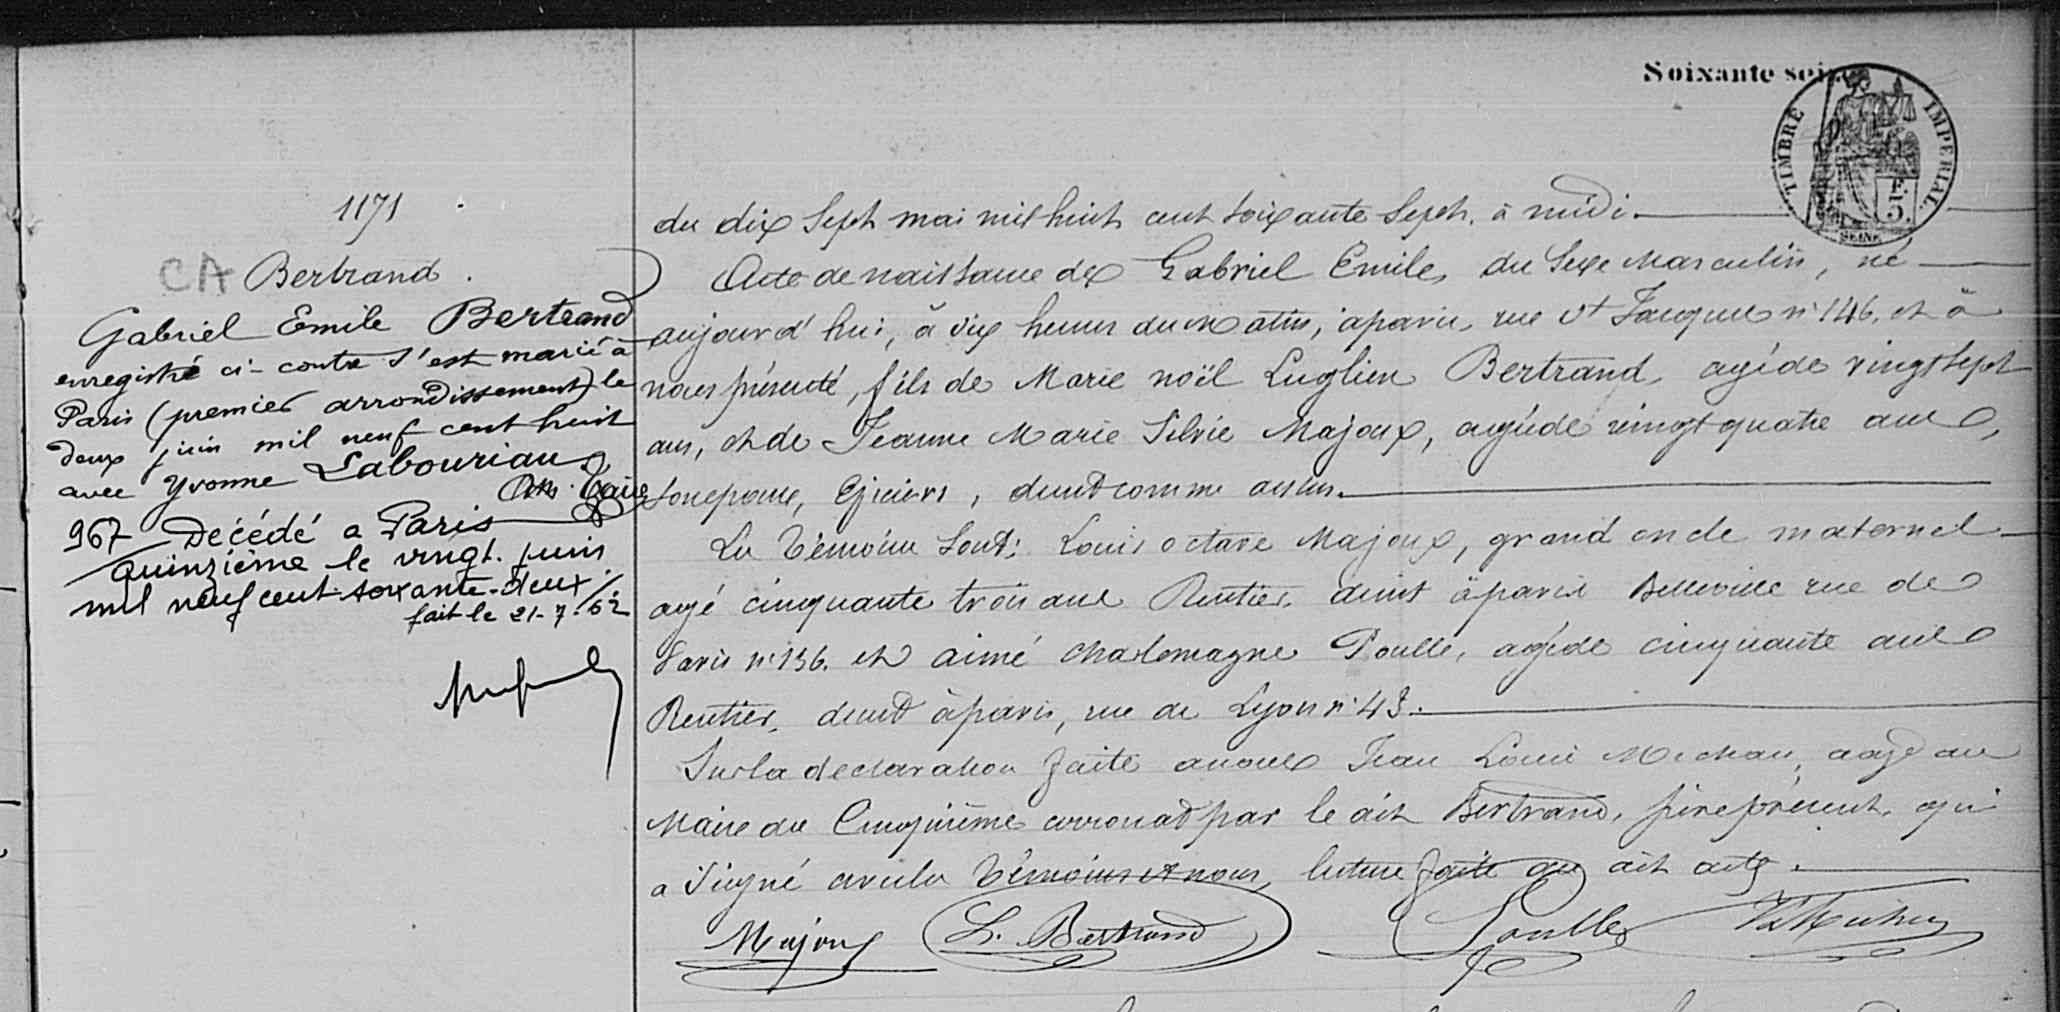 Soixante seize
TIMBRE IMPERIAL
5
SEINE
1171
CA Bertrand
Gabriel Emile Bertrand
enregistré ci-contre s'est marié à
Paris (premier arrondissement) le
deux juin mil neuf cent huit
avec Yvonne Labouriau
967 Décédé a Paris
Quinzième le vingt juin
mil neuf cent soixante-deux /.
fait le 21-7-62
du dix Sept mai mil huit cent soixante Sept. à midi
Acte de naissance de Gabriel Emile, du Sexe Masculin, né
aujourd'hui, à dix heures du matin, à paris, rue St Jacques n° 146, et à
nous présenté, fils de Marie noël Luglien Bertrand, agé de vingt Sept
ans, et de Jeanne Marie Silvie Majoux, agée de vingt quatre ans,
son epouse, Epiciers, demt comme dessus.
Les Témoins sont: Louis octave Majoux, grand oncle maternel
agé cinquante trois ans Rentier, demt à paris Belleville rue de
Paris n° 136. et aimé charlemagne Poulle, agé de cinquante ans
Rentier, demt à paris, rue de Lyon n° 43.
Sur la declaration faite a nous Jean Louis Michau, adjt au
Maire du Cinquième arrondt par le dit Bertrand, père présent, qui
a Signé avec les Témoins et nous, lecture faite du dit acte.
Majoux L. Bertrand Poulle